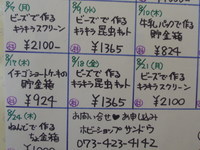 8/9(月)
ビーズで作る
キラキラスクリーン
¥2100-
ビーズで作る
キラキラ昆虫キット
¥1365
8/10(木)
牛乳パックで作る
貯金箱
¥824
8/17(木)
イチゴショートケーキの
貯金箱
¥924
8/18(金)
ビーズで作る
キラキラ昆虫キット
¥1365
8/21(月)
ビーズで作る
キラキラスクリーン
¥2100
8/24(木)
ねんどで作る
貯金箱
¥1000
お問い合せ♥お申し込み
ホビーショップサンドウ
073-423-4142